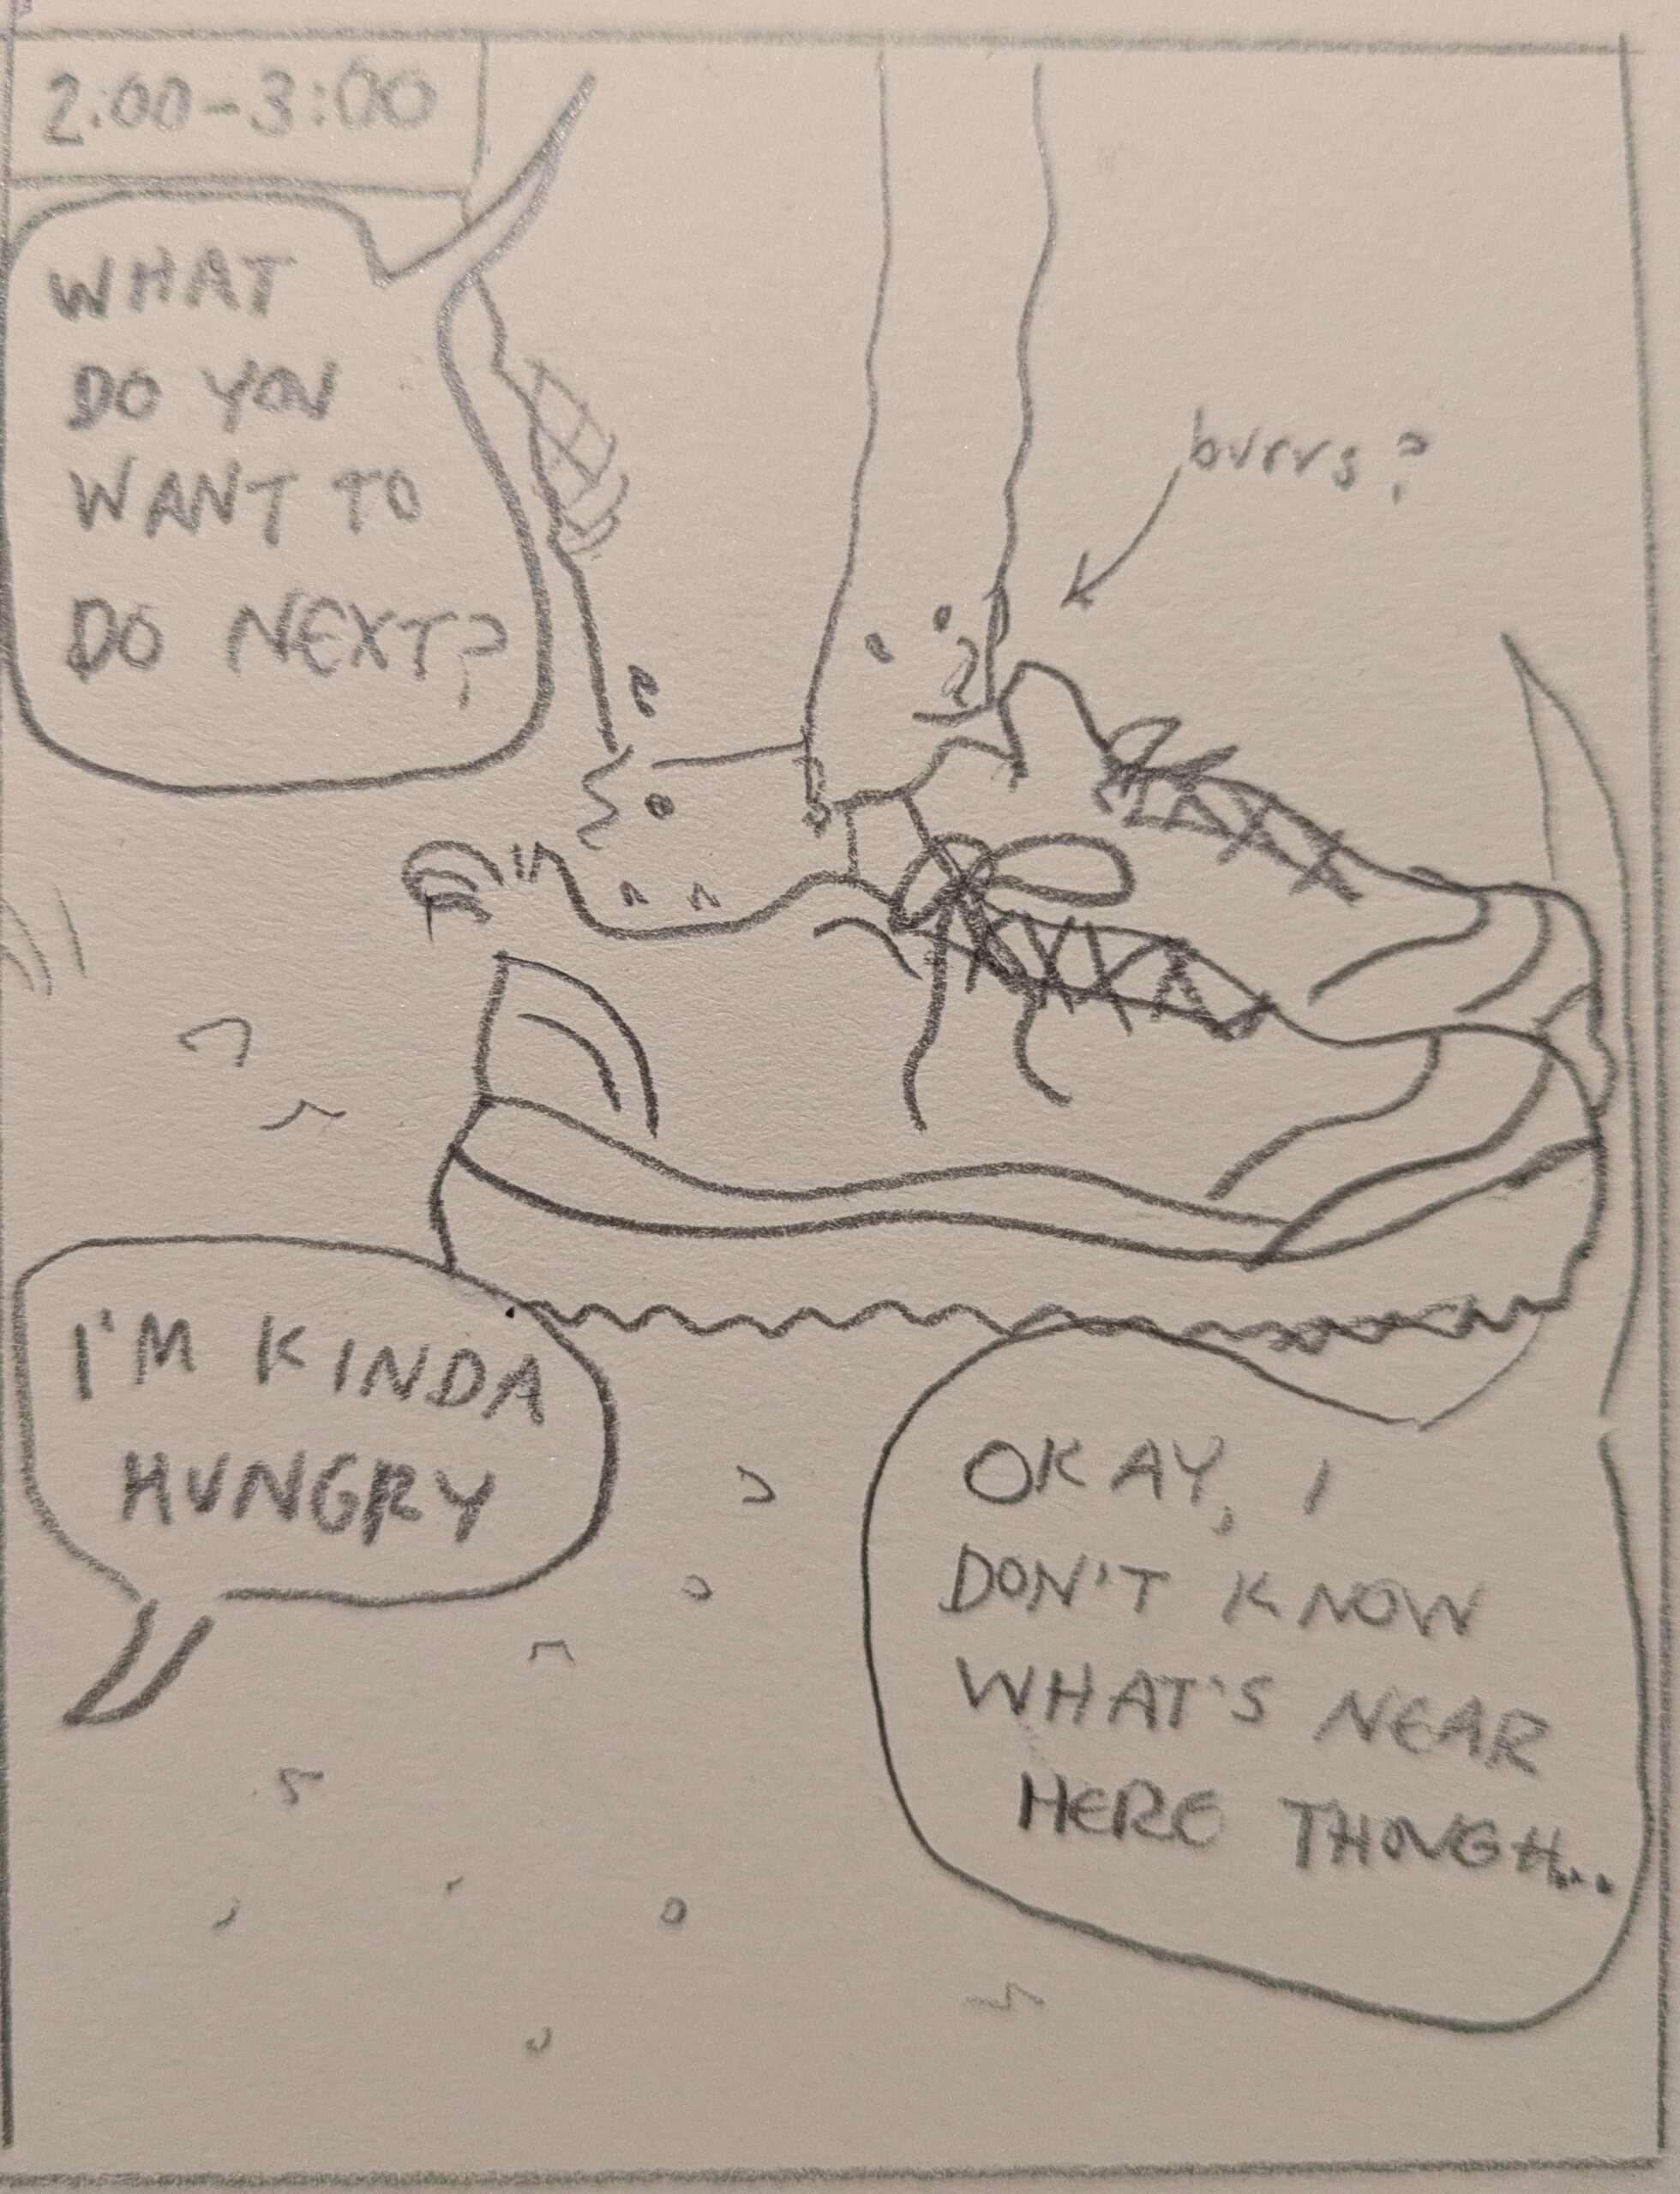 2:00-3:00
WHAT
DO YOU
WANT TO
DO NEXT?
burrs?
I'M KINDA
HUNGRY
OKAY, I
DON'T KNOW
WHAT'S NEAR
HERE THOUGH...